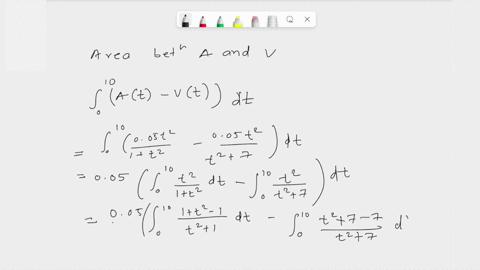 Area betⁿ A and V
∫₀¹⁰ (A(t) - V(t)) dt
= ∫₀¹⁰ (0.05t²/1+t² - 0.05t²/t²+7) dt
= 0.05 (∫₀¹⁰ t²/1+t² dt - ∫₀¹⁰ t²/t²+7) dt
= 0.05 (∫₀¹⁰ 1+t²-1/t²+1 dt - ∫₀¹⁰ t²+7-7/t²+7 d